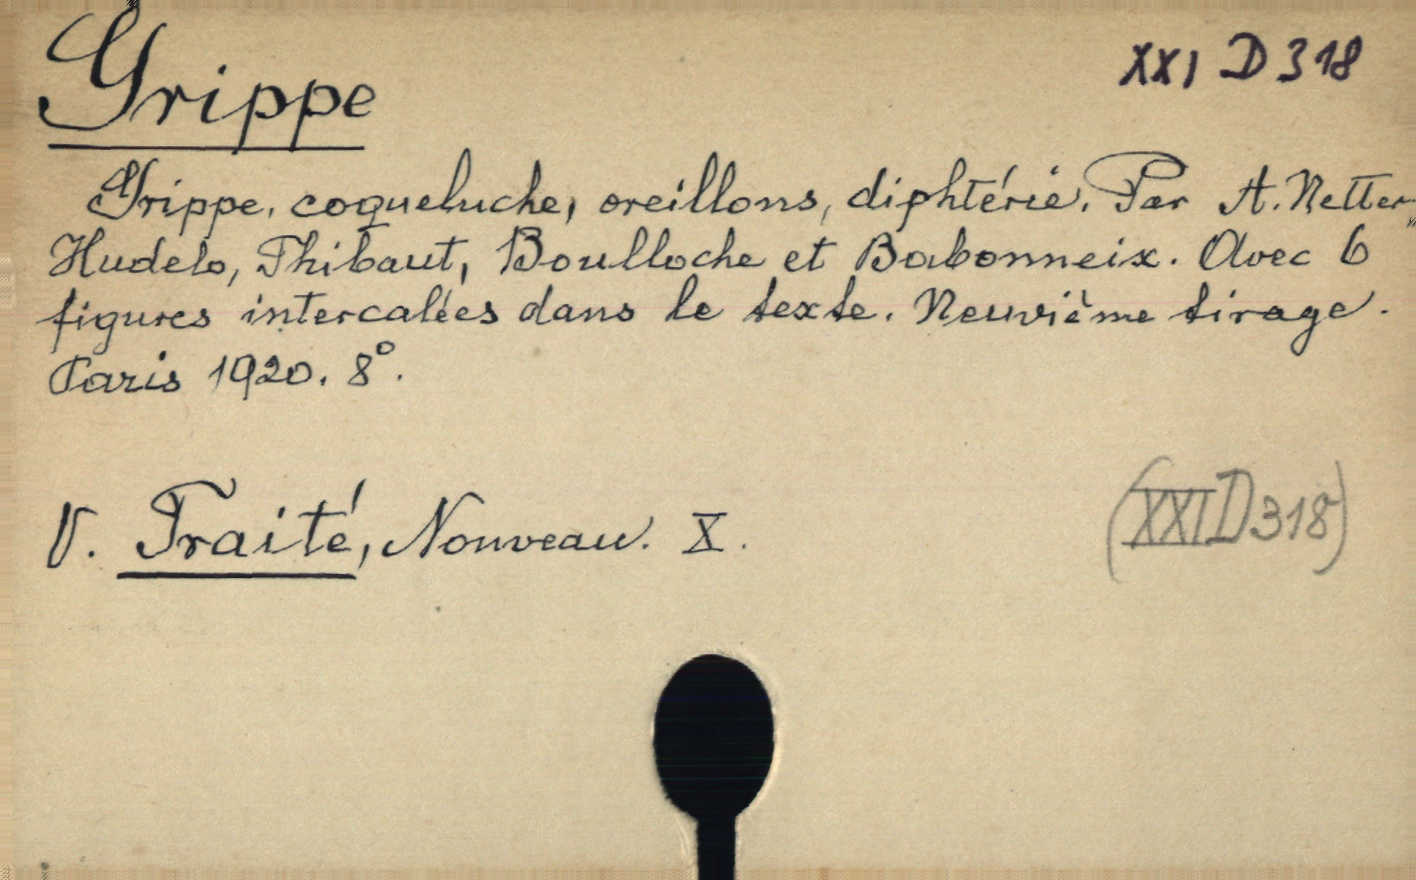 Grippe
XXI D 318
Grippe, coqueluche, oreillons, diphtérie. Par A. Netter
Hudelo, Thibaut, Boulloche et Babonneix. Avec 6
figures intercalées dans le texte. Neuvième tirage.
Paris 1920. 8°.
V. Traité, Nouveau. X.
(XXI D 318)